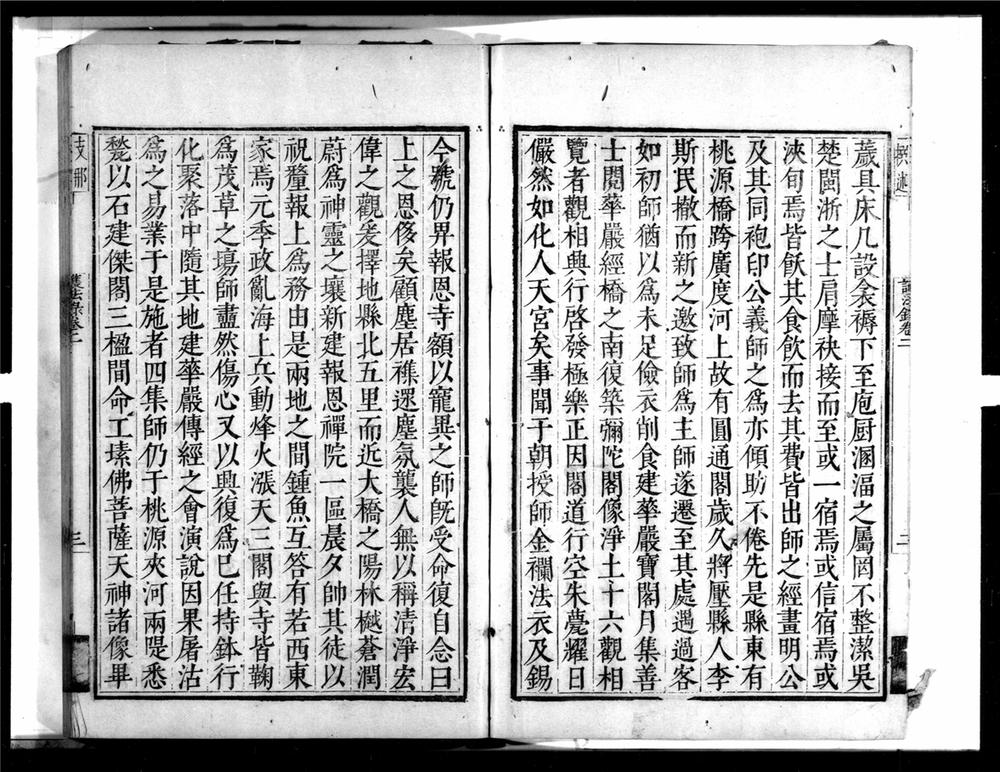 葳具床几設衾褥下至庖厨溷湢之屬罔不整潔吳
楚閩浙之士肩摩袂接而至或一宿焉或信宿焉或
浹旬焉皆飫其食飲而去其費皆出師之經畫明公
及其同袍印公義師之爲亦傾助不倦先是縣東有
桃源橋跨廣度河上故有圓通閣歲久將壓縣人李
斯民撤而新之邀致師爲主師遂遷至其處遇過客
如初師猶以爲未足儉衣削食建華嚴寶閣月集善
士閱華嚴經橋之南復築彌陀閣像淨土十六觀相
覽者觀相興行啓發極樂正因閣道行空朱甍耀日
儼然如化人天宮矣事聞于朝授師金襴法衣及錫
今號仍畀報恩寺額以寵異之師旣受命復自念曰
上之恩侈矣顧塵居襍遝塵氛襲人無以稱清淨宏
偉之觀爰擇地縣北五里而近大橋之陽林樾蒼潤
蔚爲神靈之壤新建報恩禪院一區晨夕帥其徒以
祝釐報上爲務由是兩地之間鍾魚互答有若西東
家焉元季政亂海上兵動烽火漲天三閣與寺皆鞠
爲茂草之塲師盡然傷心又以興復爲已任持鉢行
化聚落中隨其地建華嚴傳經之會演說因果屠沽
爲之易業于是施者四集師仍于桃源夾河兩隄悉
甃以石建傑閣三楹間命工塐佛菩薩天神諸像畢
支那
護法錄卷二
三